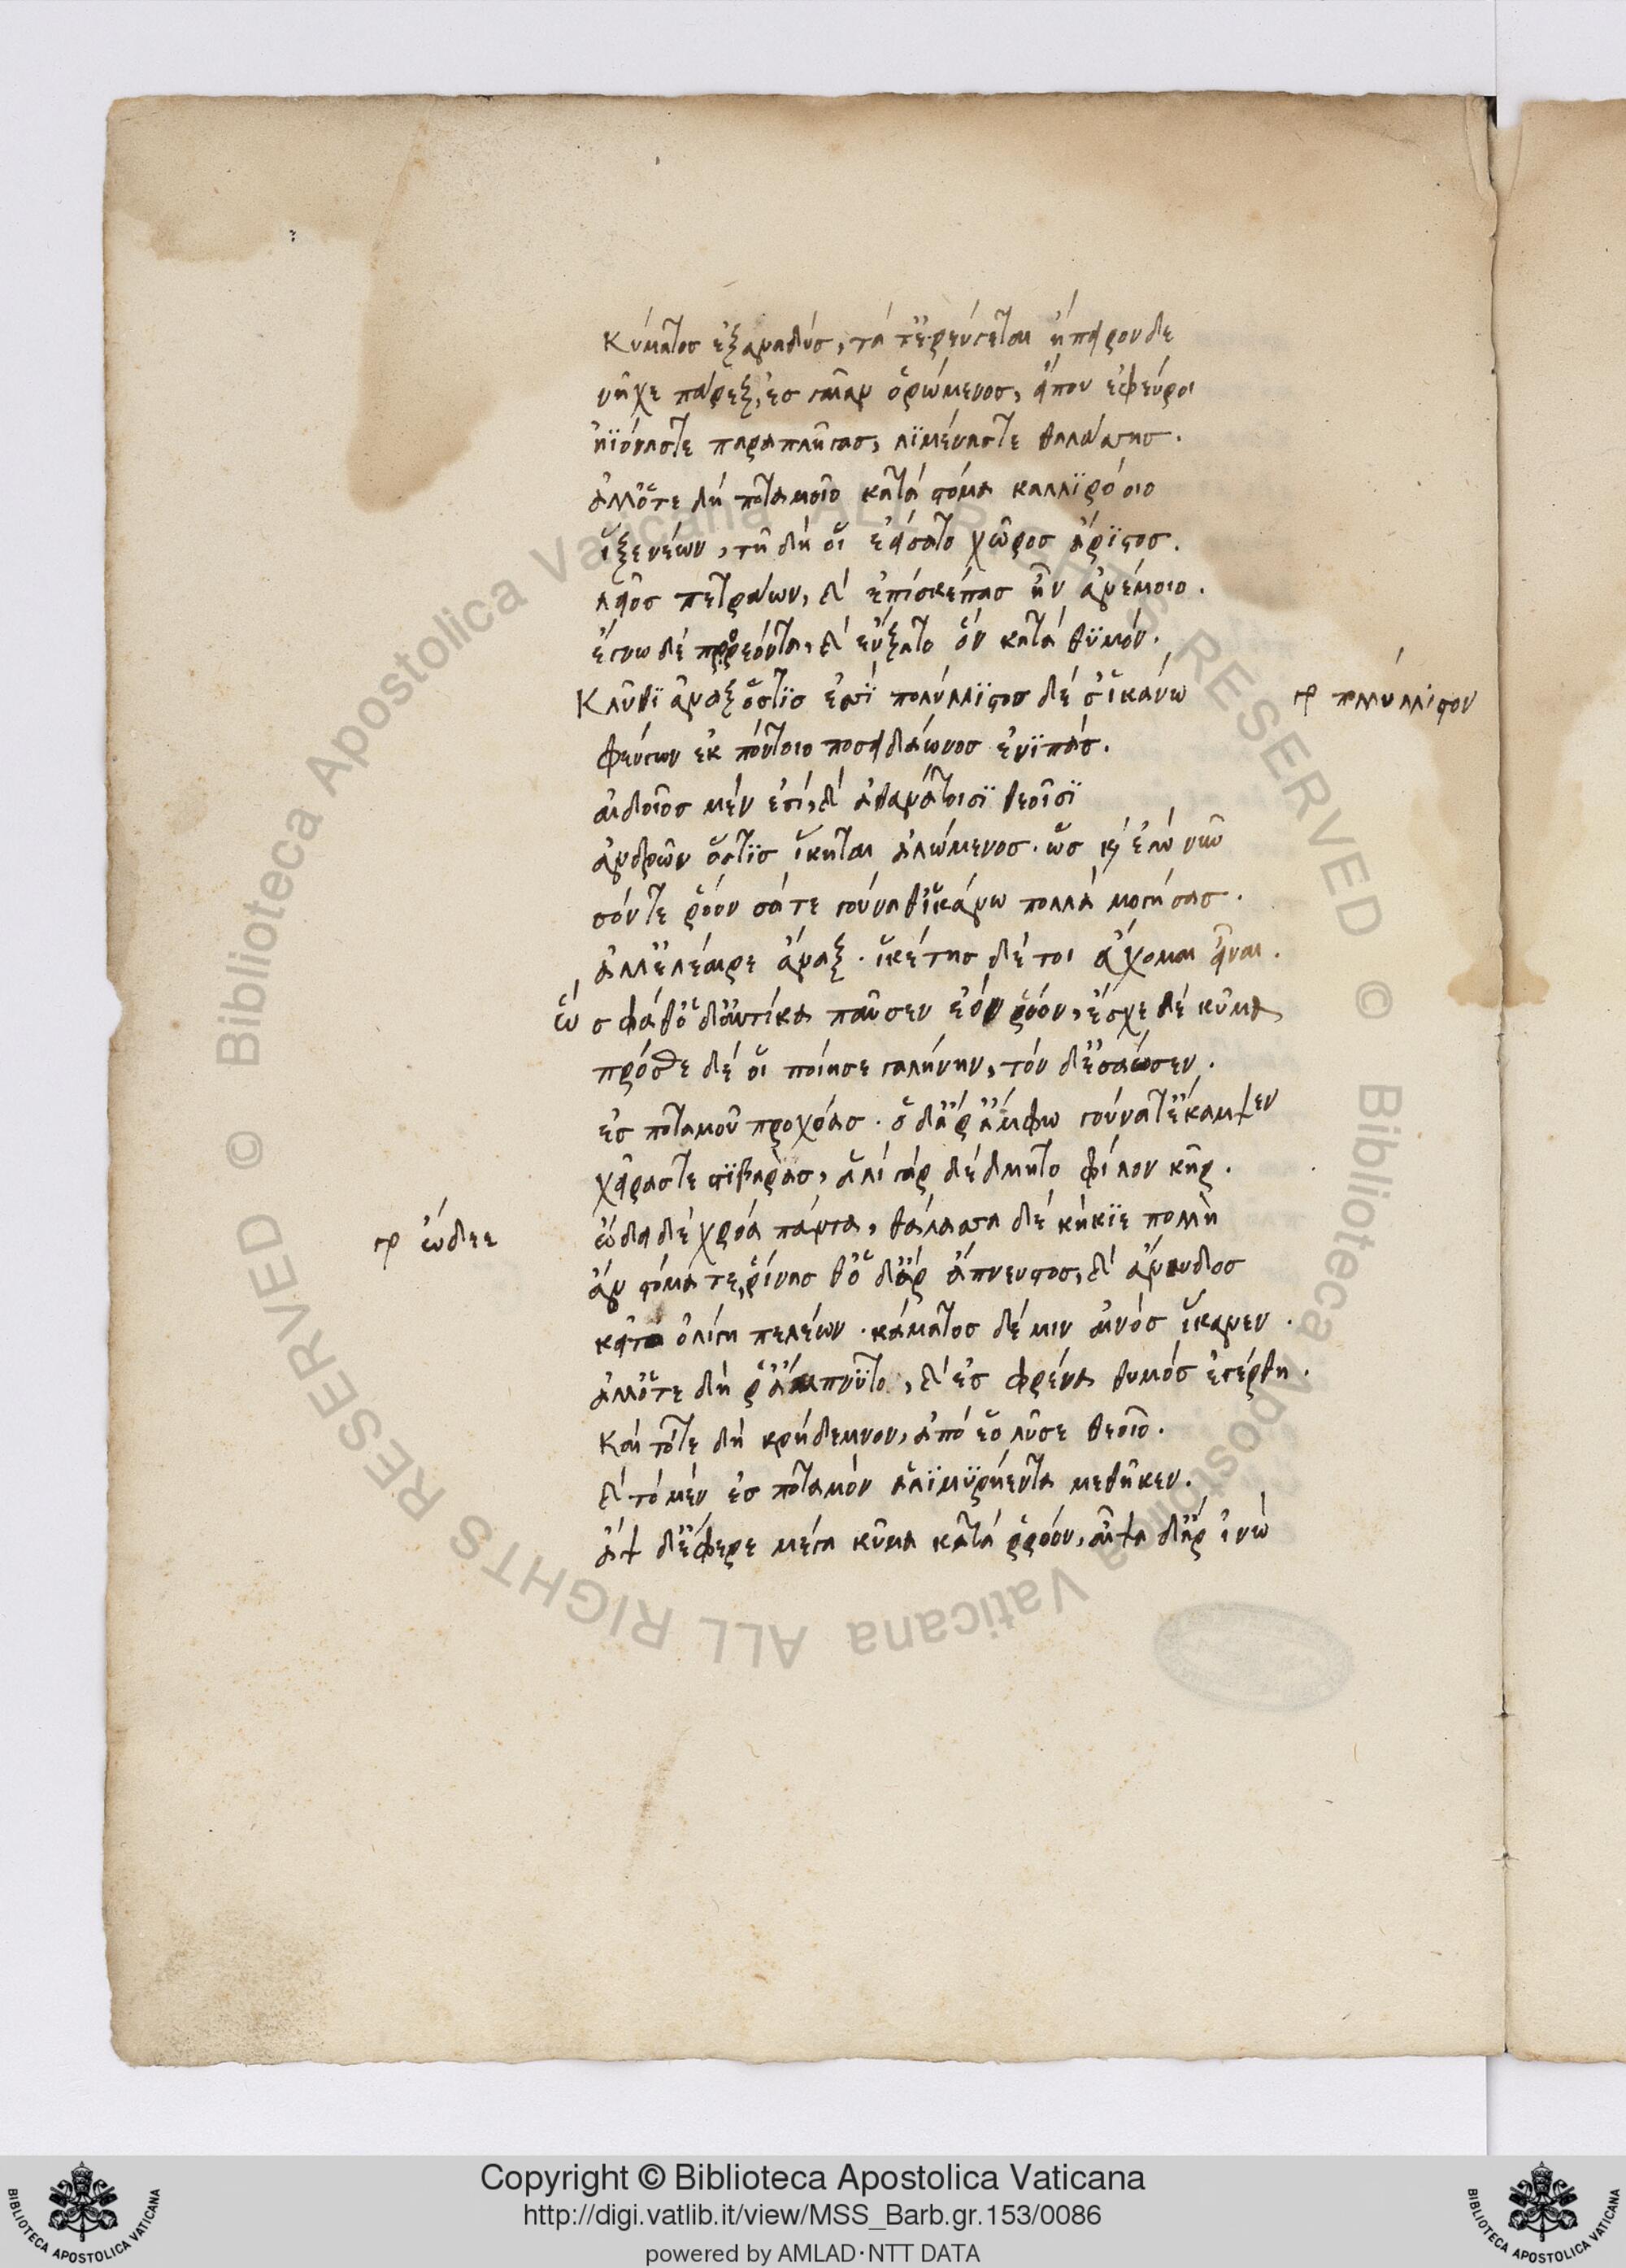 Κύματος ἐξαναδὺς, τά τ' ἐρεύγεται ἤπειρον δε
νῆχε παρὲξ, ἐς γαῖαν ὁρώμενος, εἴ που ἐφεύροι
ἠϊόνας τε παραπλῆγας, λιμένας τε θαλάσσης.
ἀλλ' ὅτε δὴ ποταμοῖο κατὰ στόμα καλλιρόοιο
ἷξε νέων, τῇ δή οἱ ἐείσατο χῶρος ἄριστος.
λεῖος πετράων, καὶ ἐπὶ σκέπας ἦν ἀνέμοιο.
ἔγνω δὲ προρέοντα, καὶ εὔξατο ὃν κατὰ θυμόν.
Κλῦθι ἄναξ ὅστις ἐσσί πολύλλιστος δέ σ' ἱκάνω
φεύγων ἐκ πόντοιο ποσειδάωνος ἐνιπάς.
αἰδοῖος μέν ἐστι, καὶ ἀθανάτοισι θεοῖσι
ἀνδρῶν ὅστις ἵκηται ἀλώμενος. ὡς καὶ ἐγὼ νῦν
σόν τε ῥόον σά τε γούναθ' ἱκάνω πολλὰ μογήσας.
ἀλλ' ἐλέαιρε ἄναξ. ἱκέτης δέ τοι εὔχομαι εἶναι.
ὣς φάθ' ὁ δ' αὐτίκα παῦσεν ἑὸν ῥόον, ἔσχε δὲ κῦμα
πρόσθε δέ οἱ ποίησε γαλήνην, τὸν δ' ἐσάωσεν.
ἐς ποταμοῦ προχοάς. ὁ δ' ἄρ' ἄμφω γούνατ' ἔκαμψεν
χεῖράς τε στιβαράς, ἁλὶ γὰρ δέδμητο φίλον κῆρ.
ὤδει δὲ χρόα πάντα, θάλασσα δὲ κήκιε πολλὴ
ἂν στόμα τε, ῥῖνας θ' ὁ δ' ἄρ' ἄπνευστος, καὶ ἄναυδος
κεῖτο ὀλιγηπελέων. κάματος δέ μιν αἰνὸς ἵκανεν.
ἀλλ' ὅτε δή ῥ' ἄμπνυτο, καὶ ἐς φρένα θυμὸς ἐγέρθη.
Καὶ τότε δὴ κρήδεμνον, ἀπὸ ἕο λῦσε θεοῖο.
καὶ τὸ μὲν ἐς ποταμὸν ἁλιμυρήεντα μεθῆκεν.
ἂψ δ' ἔφερε μέγα κῦμα κατὰ ῥρόον, αἶψα δ' ἄρ' ἰνὼ
γρ πολύλλιστον
γρ ὤδεε
Copyright © Biblioteca Apostolica Vaticana
http://digi.vatlib.it/view/MSS_Barb.gr.153/0086
powered by AMLAD·NTT DATA